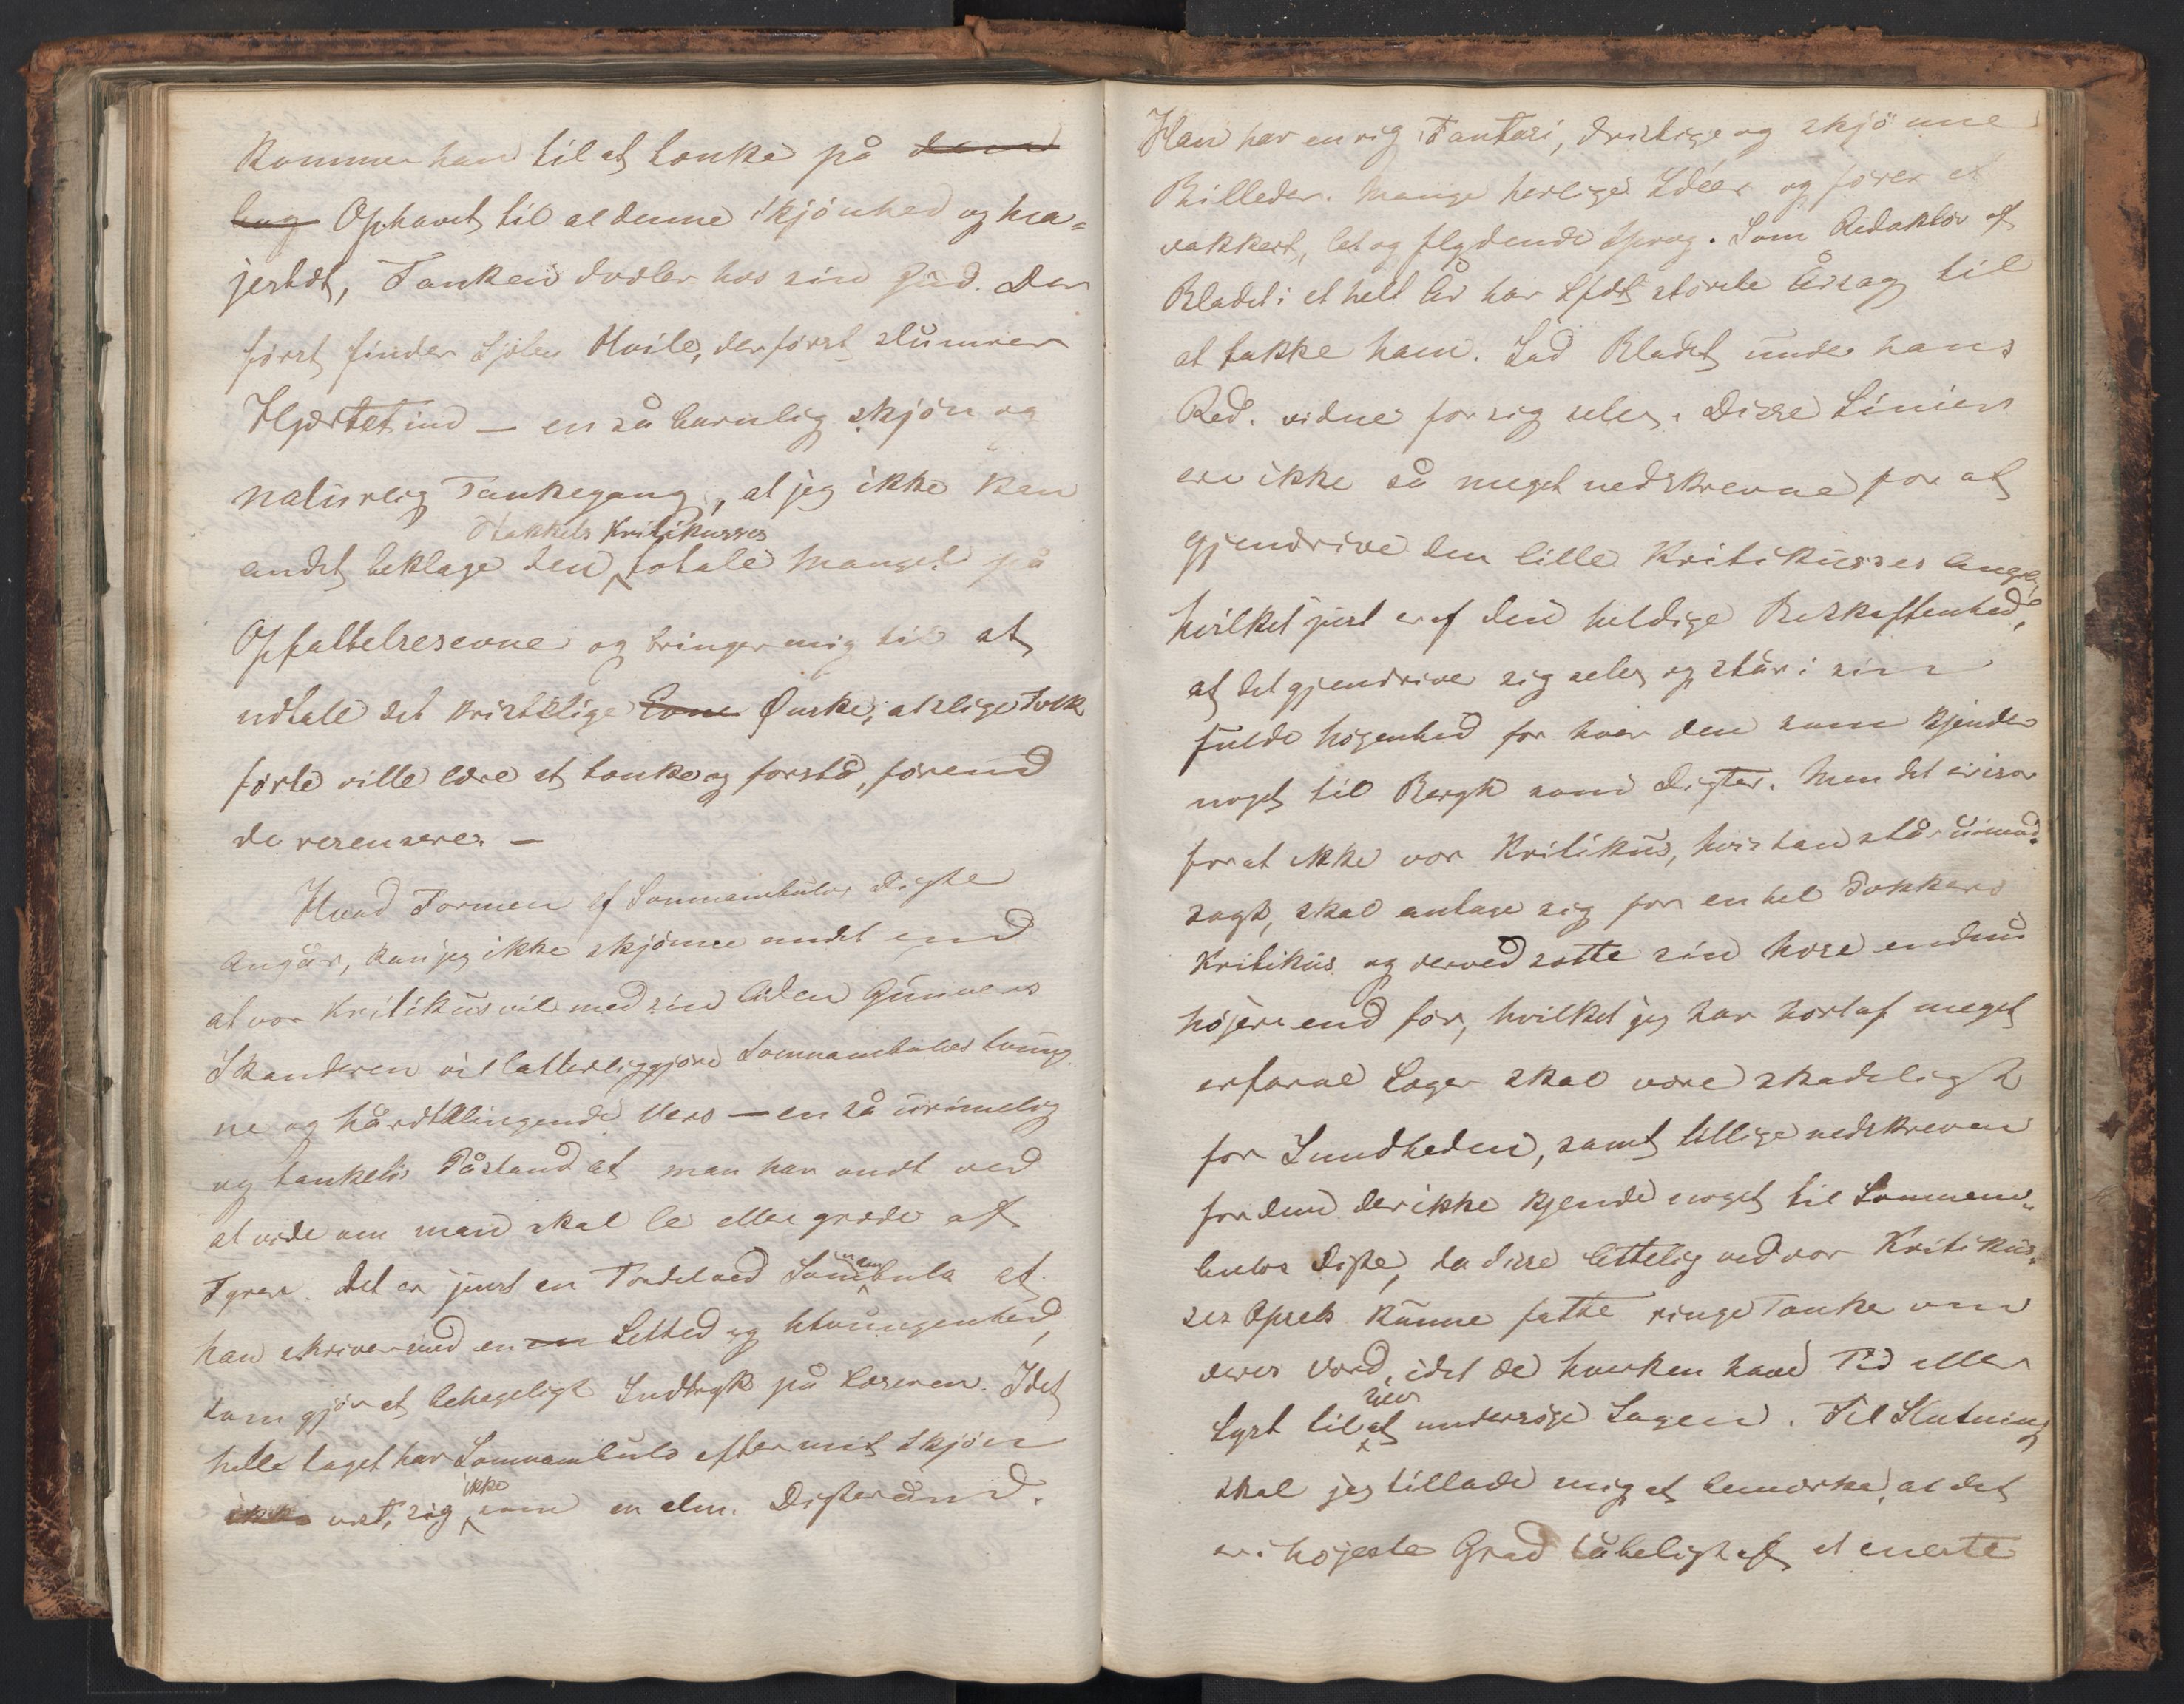 kommer han til at tænke på denne
bag Ophavet til al denne Skjønhed og Ma=
jestæt, Tanken dvæler hos sin Gud. Der
først finder Sjælen Hvile, der først slumrer
Hjærtet ind — en så barnlig skjøn og
naturlig Tankegang, at jeg ikke kan
Stakkels Kritikusses
andet beklage den totale Mangel på
Opfattelsesevne og bringer mig til at
udtale det kristelige Evne Ønske, at slige Folk
førte ville lære at tænke og forstå, førend
de resensere. —
Hvad Formen af Somnambulos Digte
angår, kan jeg ikke skjønne andet end
at vor Kritikus vil med sin Liden Gunvers
Skanderen vil latterliggjøre Somnambulos tung
ne og hårdtklingende Vers — en så urimelig
og tankeløs Påstand at man har ondt ved
at vide om man skal le eller græde af
Fyren. Det er just en Fordel ved Somnambulo at
han skriver med en en Lethed og Utvungenhed,
som gjør et behageligt Indtryk på Læseren. I det
hele taget har Somnambulo efter mit Skjøn
ikke
ikke vist sig som en alm. Digterånd.
Han har en rig Fantasi, dristige og skjønne
Billeder. Mange herlige Idéer og fører et
vakkert, let og flydende Sprog. Som Redaktør af
Bladet i et helt År har Sfdt største Årsag til
at takke ham. Lad Bladet under hans
Red. vidne for sig selv. Disse Linier
ere ikke så meget nedskrevne for at
gjendrive den lille Kritikusses Angreb,
hvilket just er af den heldige Beskaffenhed,
at det gjendriver sig selv og står i sin
fulde Høgenhed for hver den som kjender
noget til Bergh som Digter. Men det er især
for at ikke vor Kritikus, hvis han står uimod=
sagt, skal antage sig for en hel Pokkers
Kritikus og derved sætte sin Næse endnu
højere end før, hvilket jeg har hørt af meget
erfarne Læger skal være skadeligt
for Sundheden, samt tillige nedskreven
for dem der ikke kjende noget til Somnam=
bulos Digte, da disse lettelig ved vor Kritikus=
ses Opsats kunne fatte ringe Tanke om
deres Værd, idet de hverken have Tid eller
Lyst til at undersøge Sagen. Til Slutning
skal jeg tillade mig at bemærke, at det
er i højeste Grad tåbeligt af et eneste